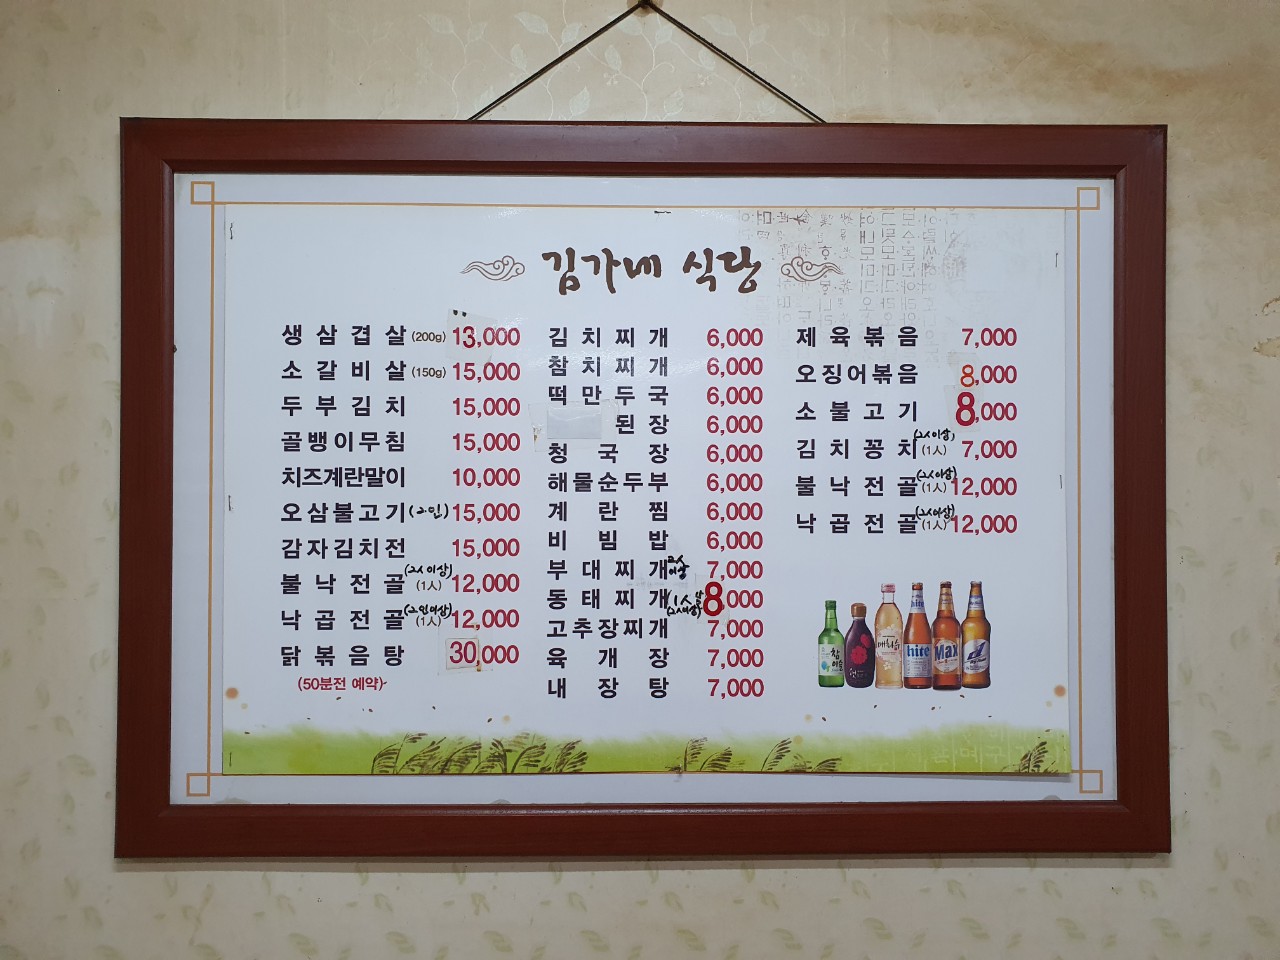 김가네 식당
생삼겹살 (200g) 13,000
소갈비살 (150g) 15,000
두부김치 15,000
골뱅이무침 15,000
치즈계란말이 10,000
오삼불고기 (2인) 15,000
감자김치전 15,000
불낙전골 (2人이상) (1人) 12,000
낙곱전골 (2인이상) (1人) 12,000
닭볶음탕 30,000
(50분전 예약)
김치찌개 6,000
참치찌개 6,000
떡만두국 6,000
된장 6,000
청국장 6,000
해물순두부 6,000
계란찜 6,000
비빔밥 6,000
부대찌개 2人이상 7,000
동태찌개 (2人이상) 8,000
고추장찌개 7,000
육개장 7,000
내장탕 7,000
제육볶음 7,000
오징어볶음 8,000
소불고기 8,000
김치꽁치 (2人이상) (1人) 7,000
불낙전골 (2人이상) (1人) 12,000
낙곱전골 (2人이상) (1人) 12,000
참이슬
매화수
hite
Max